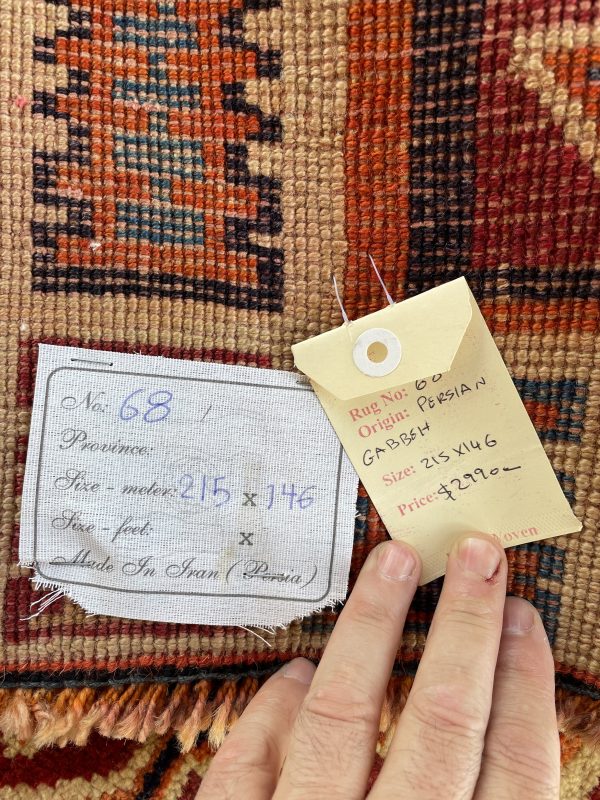 No: 68
Province:
Size - meter: 215 x 146
Size - feet: x
Made In Iran (Persia)
Rug No: 68
Origin: PERSIAN
GABBEH
Size: 215 X 146
Price: $2990-
Woven